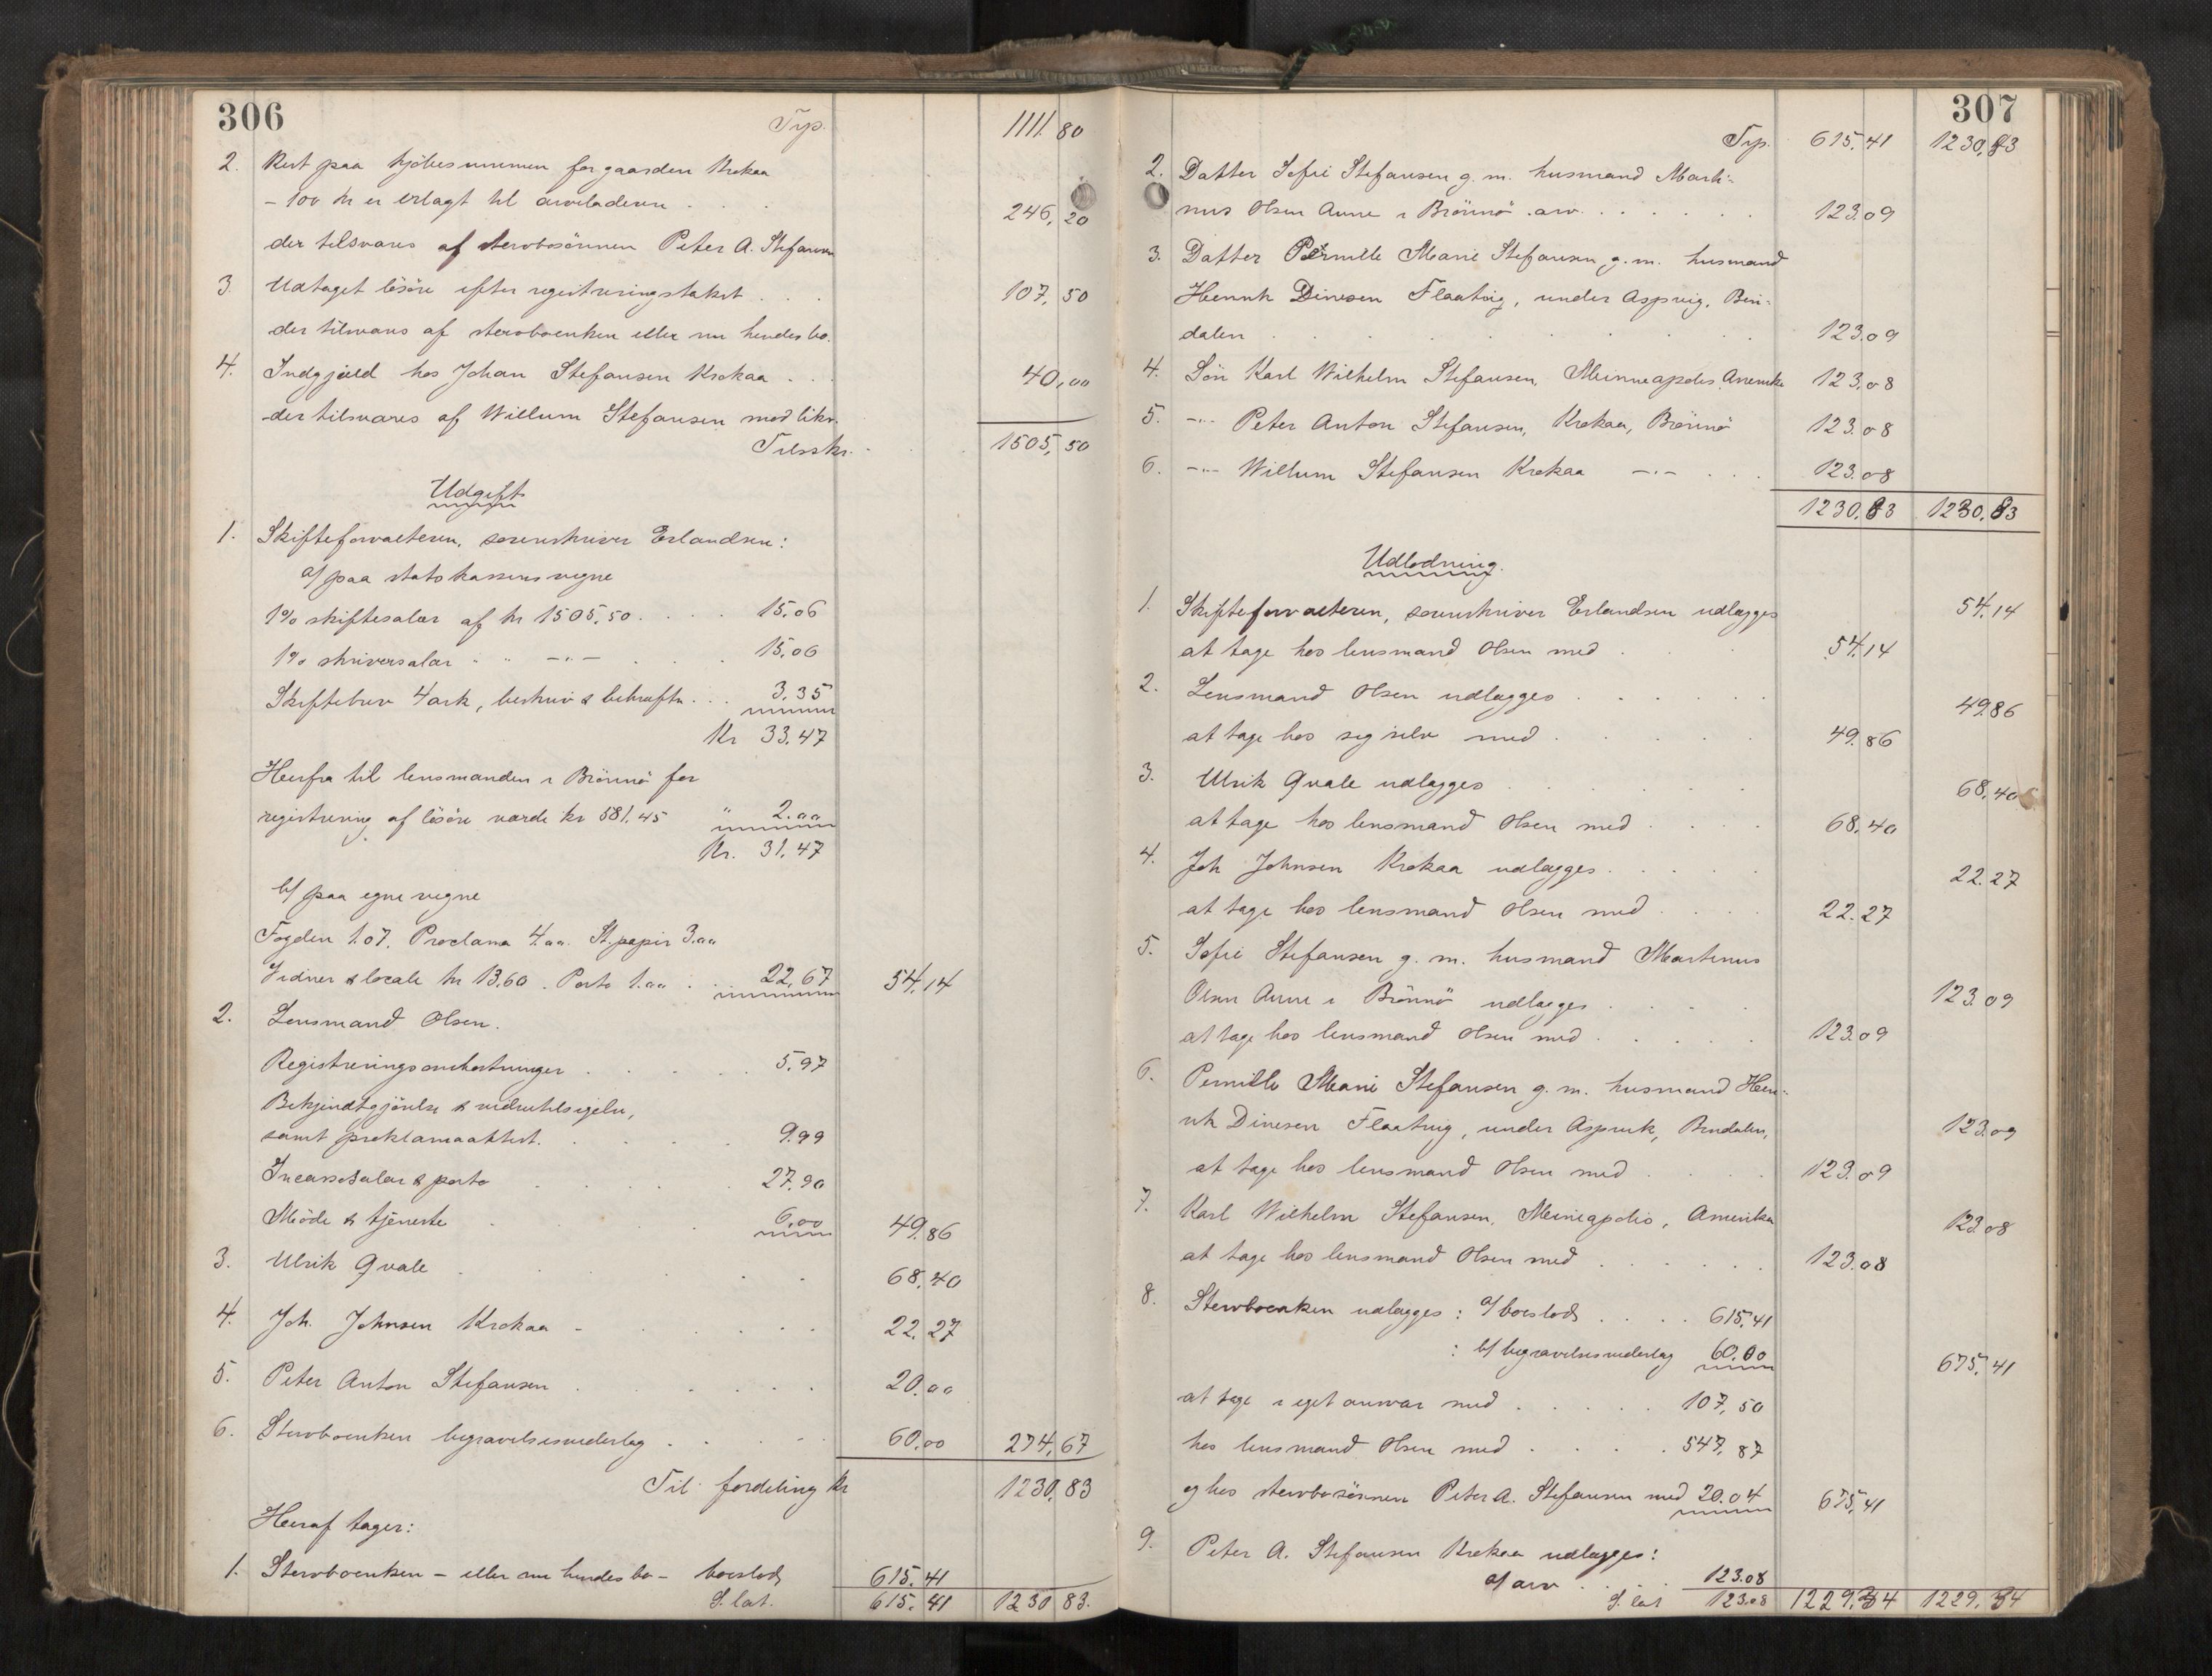 306
Trp. 1111. 80
2. Rest paa kjöbesummen for gaarden Krokaa
- 100 kr er erlagt til arveladeren . . . 246, 20
der tilsvares af stervbosönnen Peter A. Stefansen
3. Udtaget lösöre efter registreringstakst . . . 107, 50
der tilsvares af stervboenken eller nu hendes bo.
4. Indgjæld hos Johan Stefansen Krokaa . . . 40,00
der tilsvares af Willum Stefansen med likv.
Tilsskr. 1505, 50
Udgift
1. Skifteforvalteren, sorenskriver Erlandsen:
a/ paa statskassens vegne
1% skiftesalær af kr 1505,50 . . . 15,06
1% skriversalær " " -"- . . . 15,06
Skiftebrev 4 ark, beskriv & bekræftn . . . 3,35
Kr 33,47
Herfra til lensmanden i Brönnö for
registrering af lösöre værdi kr 581.45 " 2.00
Kr. 31,47
b/ paa egne vegne
Fogden 1.07. Proclama 4.00. St.papir 3.00
Vidner & locale kr 13,60. Porto 1.00 . . 22,67 54,14
2. Lensmand Olsen.
Registreringsomkostninger . . . 5,97
Bekjendtgjörelse &
samt proklamaattest. . . . 9.99
Incassosalær & porto . . . 27,90
Möde & tjeneste . . . 6,00 49,86
3. Ulrik Qvale . . . 68,40
4. Joh. Johnsen Krokaa - . . . 22,27
5. Peter Anton Stefansen . . . 20,00
6. Stervboenken begravelsesvederlag . . . 60,00 274,67
Til fordeling kr 1230,83
Heraf tager:
1. Stervboenken - eller nu hendes bo - boeslods 615,41
S. lat. 615,41 1230 83.
307
Trp. 615,41 1230,83
2. Datter Sofie Stefansen g. m. husmand Marti-
nus Olsen Aune i Brönnö .arv. . . . 123.09
3. Datter Pernille Marie Stefansen g. m. husmand
Henrik Dinesen Flaatvig, under Aspvig, Bin-
dalen . . . 123.09
4. Sön Karl Wilhelm Stefansen, Minneapolis, Amerika 123,08
5. -"- Peter Anton Stefansen, Krokaa, Brönnö 123.08
6. -"- Willum Stefansen Krokaa -"- . . . 123.08
1230,83 1230,83
Udlodning.
1. Skifteforvalteren, sorenskriver Erlandsen udlægges 54.14
at tage hos lensmand Olsen med . . . 54,14
2. Lensmand Olsen udlægges . . . 49.86
at tage hos sig selv med . . . 49.86
3. Ulrik Qvale udlægges . . . 68,40
at tage hos lensmand Olsen med . . . 68,40
4. Joh Johnsen Krokaa udlægges . . . 22.27
at tage hos lensmand Olsen med . . . 22.27
5. Sofie Stefansen g. m. husmand Martinus
Olsen Aune i Brönnö udlægges . . . 123.09
at tage hos lensmand Olsen med . . . 123.09
6. Pernille Marie Stefansen g. m. husmand Hen-
rik Dinesen Flaatvig, under Aspvik, Bindalen, 123.09
at tage hos lensmand Olsen med . . . 123.09
7. Karl Wilhelm Stefansen, Mineapolis, Amerika 123.08
at tage hos lensmand Olsen med . . . 123.08
8. Stervboenken udlægges: a/ boeslods . . . 615,41
: b/ begravelsesvederlag 60.00 675,41
at tage i eget ansvar med . . . 107, 50
hos lensmand Olsen med . . . 547, 87
og hos stervbosönnen Peter A. Stefansen med 20.04 675,41
9. Peter A. Stefansen Krokaa udlægges:
a/ arv . . . 123.08
S. lat 123.08 1229,34 1229,34